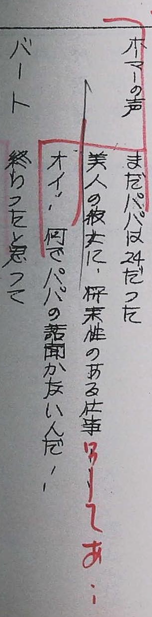 ホマーの声　まだパパは24だった
美人の彼女に、将来性のある仕事
オイ!! 何でパパの話聞かないんだ!!
バート　終わったと思って